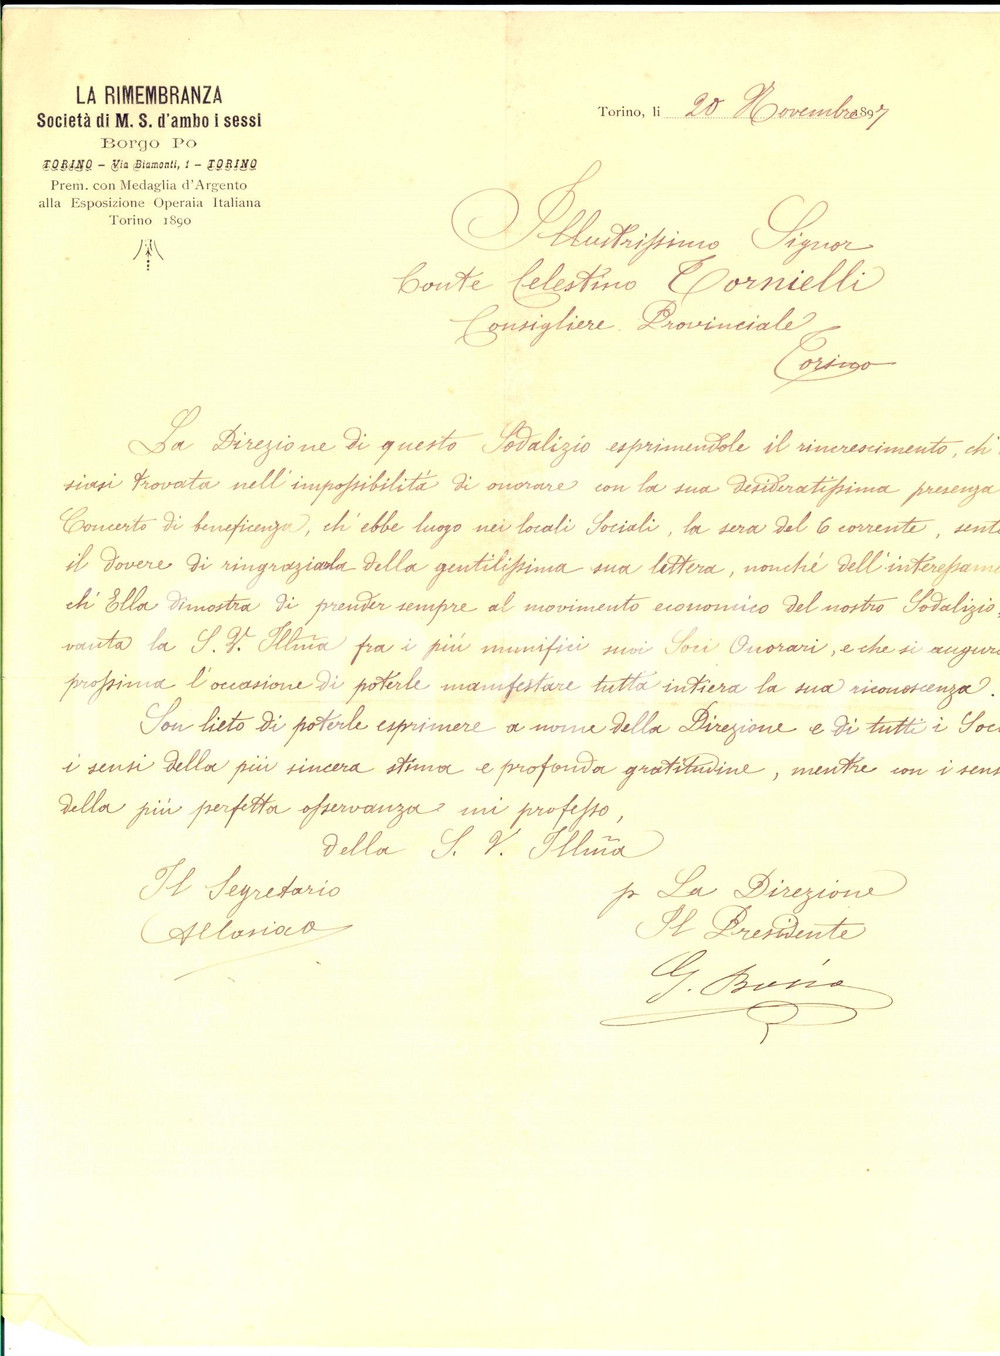 LA RIMEMBRANZA
Società di M. S. d'ambo i sessi
Borgo Po
TORINO – Via Biamonti, 1 – TORINO
Prem. con Medaglia d'Argento
alla Esposizione Operaia Italiana
Torino 1890
Torino, li 20 Novembre 1897
Illustrissimo Signor
Conte Celestino Tornielli
Consigliere Provinciale
Torino
La Direzione di questo Sodalizio esprimendole il rincrescimento, ch'
siasi trovata nell'impossibilità di onorare con la sua desideratissima presenza
Concerto di beneficenza, ch'ebbe luogo nei locali Sociali, la sera del 6 corrente, sent
il dovere di ringraziarla della gentilissima sua lettera, nonché dell'interessame
ch'Ella dimostra di prender sempre al movimento economico del nostro Sodalizio,
vanta la S. V. Illma fra i più munifici suoi Soci Onorari, e che si augura
prossima l'occasione di poterle manifestare tutta intiera la sua riconoscenza.
Son lieto di poterle esprimere a nome della Direzione e di tutti i Soci
i sensi della più sincera stima e profonda gratitudine, mentre con i sens
della più perfetta osservanza mi professo,
della S. V. Illma
Il Segretario
p La Direzione
Il Presidente
G.